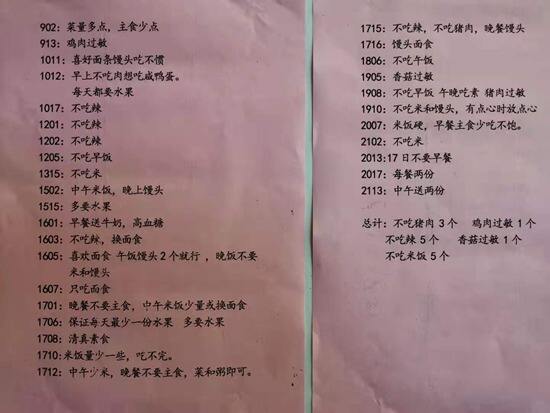 902：菜量多点，主食少点
913：鸡肉过敏
1011：喜好面条馒头吃不惯
1012：早上不吃肉想吃咸鸭蛋。
每天都要水果
1017：不吃辣
1201：不吃辣
1202：不吃辣
1205：不吃早饭
1315：不吃米
1502：中午米饭，晚上馒头
1515：多要水果
1601：早餐送牛奶，高血糖
1603：不吃辣，换面食
1605：喜欢面食 午饭馒头2个就行 ，晚饭不要
米和馒头
1607：只吃面食
1701：晚餐不要主食，中午米饭少量或换面食
1706：保证每天最少一份水果 多要水果
1708：清真素食
1710:米饭量少一些，吃不完。
1712：中午少米，晚餐不要主食，菜和粥即可。
1715：不吃辣，不吃猪肉，晚餐馒头
1716：馒头面食
1806：不吃午饭
1905：香菇过敏
1908：不吃早饭 午晚吃素 猪肉过敏
1910：不吃米和馒头，有点心时放点心
2007：米饭硬，早餐主食少吃不饱。
2102：不吃米
2013:17日不要早餐
2017：每餐两份
2113：中午送两份
总计：不吃猪肉3个 鸡肉过敏1个
不吃辣5个 香菇过敏1个
不吃米饭5个